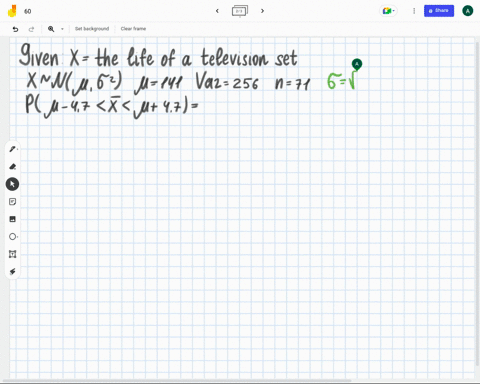 60
2/3
Share
A
Set background
Clear frame
given X = the life of a television set
A
X ~ N(μ, σ²) μ = 141 Var = 256 n = 71 σ = √
P(μ - 4.7 < X̄ < μ + 4.7) =